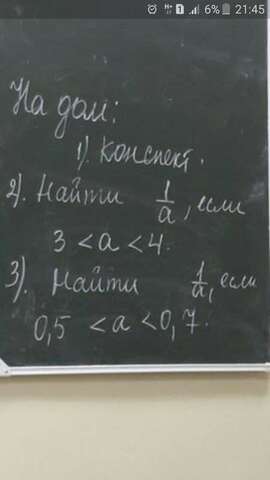 6% 21:45
На дом:
1). Конспект.
2). Найти 1/a, если
3 < a < 4.
3). Найти 1/a, если
0,5 < a < 0,7.